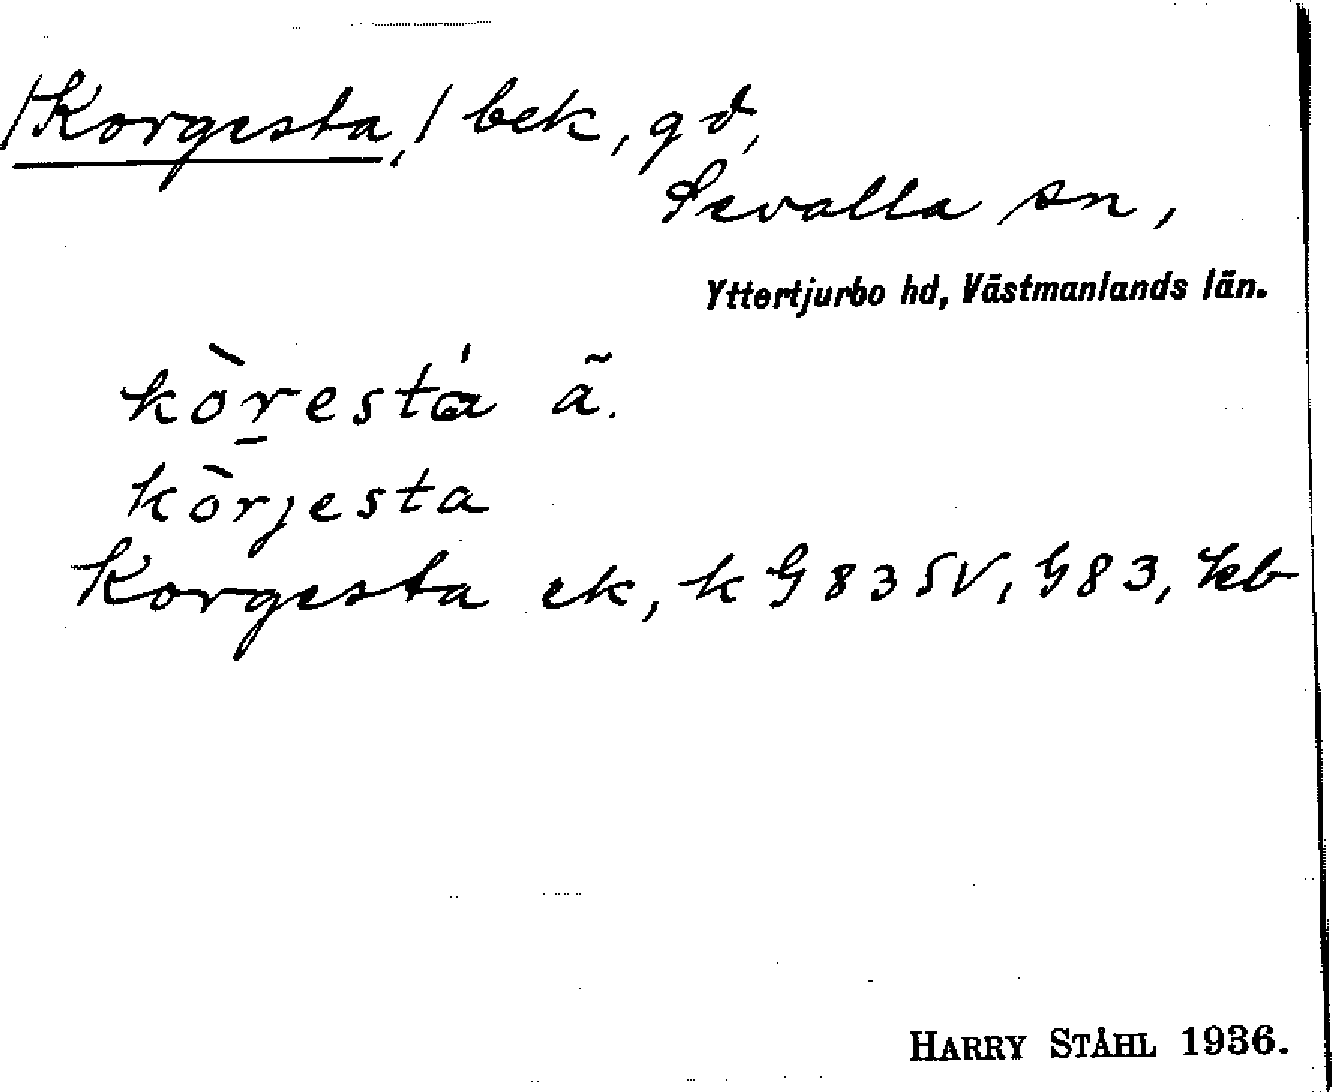 /Korgesta,/ bek, gd,
Sevalla sn,
Yttertjurbo hd, Västmanlands län.
kòresta ã.
kòrjesta
Korgesta ek, k G 83 SV, G 83, kb
HARRY STÅHL 1936.